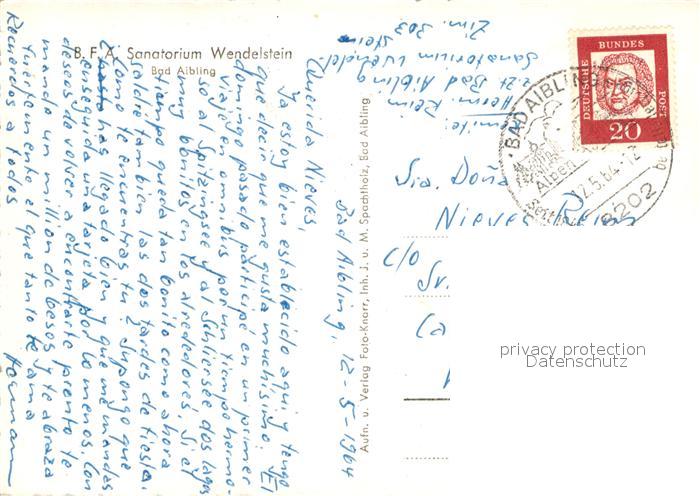 B.F.A. Sanatorium Wendelstein
Bad Aibling
Bad Aibling, 12-5-1964
Querida Nieves,
Ya estoy bien establecido aqui y tengo
que decir que me gusta muchisimo. El
domingo pasado participé en un primer
viaje en omnibus por un tiempo hermo-
so al Spitzingsee y al Schliersee dos lagos
muy bonitos en los alrededores. Si el
tiempo queda tan bonito como ahora
saldré tambien las dos tardes de fiesta.
¿Como te encuentras tu? Supongo que
has llegado bien y que me mandes
enseguida una tarjeta por lo menos. Con
deseos de volver a encontrarte pronto te
mando un million de besos y te abraza
fuertemente el que tanto te ama
Hermann
Recuerdos a todos
Aufn. u. Verlag Foto-Knorr, Inh. J. u. M. Spachtholz, Bad Aibling
Herm. Reim
z.zt. Bad Aibling
Sanatorium Wendel-
stein
Zim. 303
DEUTSCHE
BUNDES
POST
20
BAD AIBLING
Alpen
12.5.64-12
8202
Sta. Doña
Nieves
c/o
Sr.
privacy protection
Datenschutz